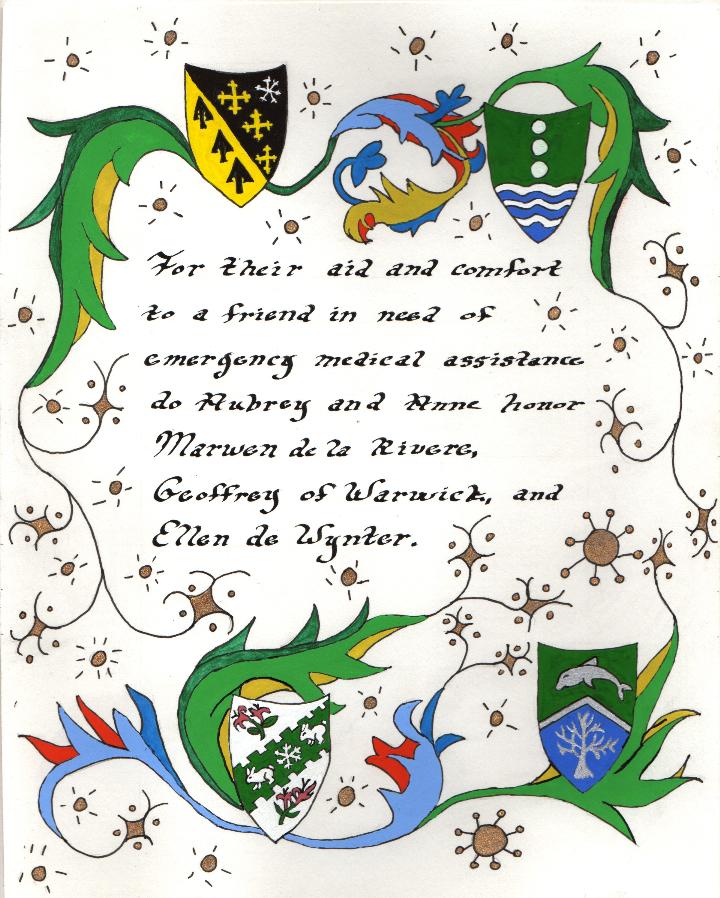 For their aid and comfort
to a friend in need of
emergency medical assistance
do Aubrey and Anne honor
Marwen de la Rivere,
Geoffrey of Warwick, and
Ellen de Wynter.